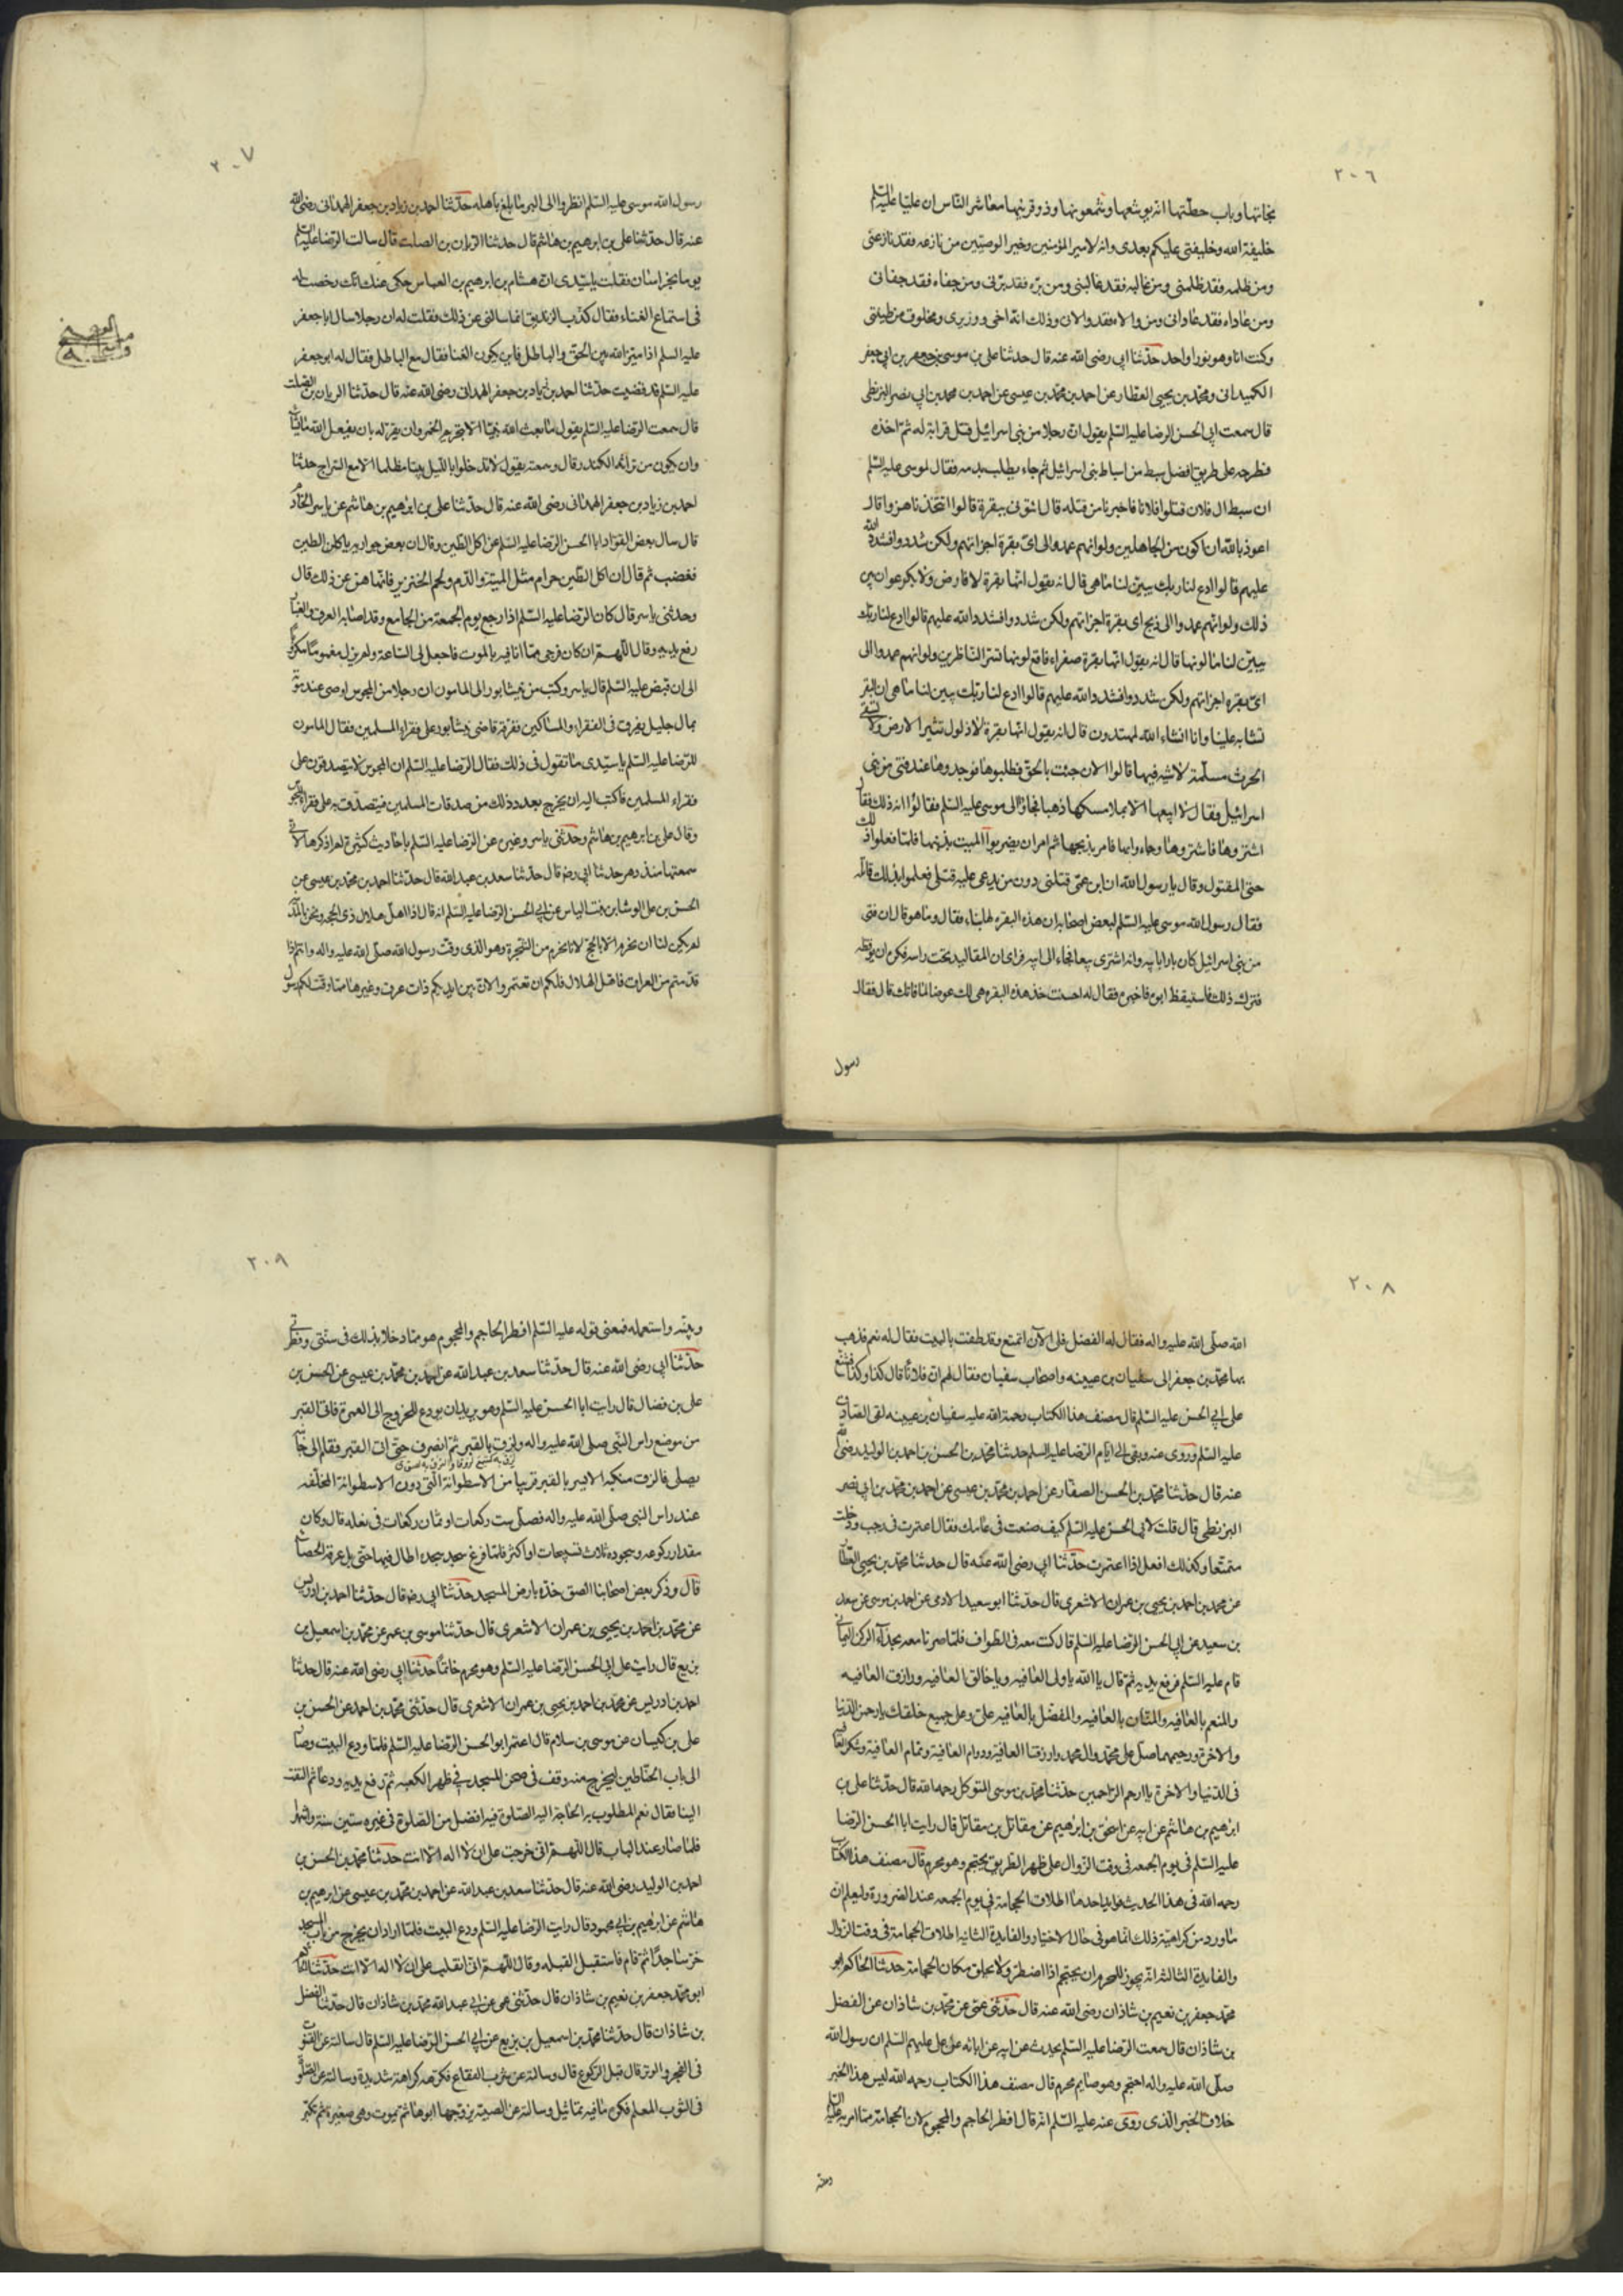 ٢٠٦
نجاتها وباب حطتها انه يوشعها وشمعونها وذو قرنيها معاشر الناس ان عليا عليه السلم
خليفة الله وخليفتي عليكم بعدى وانه لامير المؤمنين وخير الوصيين من نازعه فقد نازعنى
ومن ظلمه فقد ظلمنى ومن غالبه فقد غالبنى ومن بره فقد برنى ومن جفاه فقد جفانى
ومن عاداه فقد عادانى ومن والاه فقد والانى وذلك انه اخى ووزيرى ومخلوق من طينتى
وكنت انا وهو نورا واحدا حدثنا ابى رضى الله عنه قال حدثنا على بن موسى بن جعفر بن ابى جعفر
الكميدانى ومحمد بن يحيى العطار عن احمد بن محمد بن عيسى عن احمد بن محمد بن ابى نصر البزنطى
قال سمعت ابى الحسن الرضا عليه السلم يقول ان رجلا من بنى اسرائيل قتل قرابة له ثم اخذه
فطرحه على طريق افضل سبط من اسباط بنى اسرائيل ثم جاء يطلب بدمه فقال لموسى عليه السلم
ان سبط ال فلان قتلوا فلانا فاخبرنا من قتله قال ائتونى ببقرة قالوا اتتخذنا هزوا قال
اعوذ بالله ان اكون من الجاهلين ولو انهم عمدوا الى اى بقرة اجزاتهم ولكن شددوا فشدد الله
عليهم قالوا ادع لنا ربك يبين لنا ما هى قال انه يقول انها بقرة لا فارض ولا بكر عوان بين
ذلك ولو انهم عمدوا الى ذبح اى بقرة اجزاتهم ولكن شددوا فشدد الله عليهم قالوا ادع لنا ربك
يبين لنا ما لونها قال انه يقول انها بقرة صفراء فاقع لونها تسر الناظرين ولو انهم عمدوا الى
اى بقرة اجزاتهم ولكن شددوا فشدد الله عليهم قالوا ادع لنا ربك يبين لنا ما هى ان البقر
تشابه علينا وانا انشاء الله لمهتدون قال انه يقول انها بقرة لا ذلول تثير الارض ولا تسقى
الحرث مسلمة لا شية فيها قالوا الان جئت بالحق فطلبوها فوجدوها عند فتى من بنى
اسرائيل فقال لا ابيعها الا بملا مسكها ذهبا فجاؤا الى موسى عليه السلم فقالوا له ذلك فقال
اشتروها فاشتروها وجاءوا بها فامر بذبحها ثم امر ان يضربوا الميت بذنبها فلما فعلوا ذلك
حيى المقتول وقال يا رسول الله ان ابن عمى قتلنى دون من يدعى عليه قتلى فعلموا بذلك قاتله
فقال رسول الله موسى عليه السلم لبعض اصحابه ان هذه البقرة لها نباء فقال وما هو قال ان فتى
من بنى اسرائيل كان بارا بابيه وانه اشترى بيعا فجاء الى ابيه فراى ان المقاليد تحت راسه فكره ان يوقظه
فترك ذلك فاستيقظ ابوه فاخبره فقال له احسنت خذ هذه البقرة هى لك عوضا لما فاتك قال فقال
رسول
٢٠٧
رسول الله موسى عليه السلم انظروا الى البر ما بلغ باهله حدثنا احمد بن زياد بن جعفر الهمدانى رضى الله
عنه قال حدثنا على بن ابرهيم بن هاشم قال حدثنا الريان بن الصلت قال سالت الرضا عليه السلم
يوما بخراسان فقلت يا سيدى ان هشام بن ابرهيم بن العباس حكى عنك انك رخصت له
فى استماع الغناء فقال كذب الزنديق انما سالنى عن ذلك فقلت له ان رجلا سال ابا جعفر
عليه السلم اذا ميز الله بين الحق والباطل فاين يكون الغنا فقال مع الباطل فقال له ابو جعفر
عليه السلم قد قضيت حدثنا احمد بن زياد بن جعفر الهمدانى رضى الله عنه قال حدثنا الريان بن الصلت
قال سمعت الرضا عليه السلم يقول ما بعث الله نبيا الا بتحريم الخمر وان يقر له بان يفعل الله ما يشاء
وان يكون من تراثه الكندر قال وسمعته يقول لا تدخلوا بالليل بيتا مظلما الا مع السراج حدثنا
احمد بن زياد بن جعفر الهمدانى رضى الله عنه قال حدثنا على بن ابرهيم بن هاشم عن ياسر الخادم
قال سال بعض القواد ابا الحسن الرضا عليه السلم عن اكل الطين وقال ان بعض جواريه ياكلن الطين
فغضب ثم قال ان اكل الطين حرام مثل الميتة والدم ولحم الخنزير فانهاهن عن ذلك قال
وحدثنى ياسر قال كان الرضا عليه السلم اذا رجع يوم الجمعة من الجامع وقد اصابه العرق والغبار
رفع يديه وقال اللهم ان كان فرجى مما انا فيه بالموت فاجعل لى الساعة ولم يزل مغموما مكروبا
الى ان قبض عليه السلم قال ياسر وكتب من نيشابور الى المامون ان رجلا من المجوس اوصى عند موته
بمال جليل يفرق فى الفقراء والمساكين ففرقه قاضى نيشابور على فقراء المسلمين فقال المامون
للرضا عليه السلم يا سيدى ما تقول فى ذلك فقال الرضا عليه السلم ان المجوس لا يتصدقون على
فقراء المسلمين فاكتب اليه ان يخرج بعدد ذلك من صدقات المسلمين فيتصدق به على فقراء المجوس
وقال على بن ابرهيم بن هاشم وحدثنى ياسر وغيره عن الرضا عليه السلم باحاديث كثيرة لم اذكرها لانى
سمعتها منذ دهر حدثنا ابى رضه قال حدثنا سعد بن عبد الله قال حدثنا احمد بن محمد بن عيسى عن
الحسن بن على الوشا ابن بنت الياس عن ابى الحسن الرضا عليه السلم انه قال اذا اهل هلال ذى الحجة ونحن بالمدينة
لم يكن لنا ان نحرم الا بالحج لانا نحرم من الشجرة وهو الذى وقت رسول الله صلى الله عليه واله وانتم اذا
قدمتم من العراق فاهل الهلال فلكم ان تعتمروا لان بين ايديكم ذات عرق وغيرها مما وقت لكم رسول
٢٠٨
الله صلى الله عليه واله فقال له الفضل فلى الان اتمتع وقد طفت بالبيت فقال له نعم فذهب
بها محمد بن جعفر الى سفيان بن عيينه واصحاب سفيان فقال لهم ان فلانا قال كذا وكذا فشنع
على ابى الحسن عليه السلم قال مصنف هذا الكتاب رحمة الله عليه سفيان بن عيينه لقى الصادق
عليه السلم وروى عنه وبقى الى ايام الرضا عليه السلم حدثنا محمد بن الحسن بن احمد بن الوليد رضى الله
عنه قال حدثنا محمد بن الحسن الصفار عن احمد بن محمد بن عيسى عن احمد بن محمد بن ابى نصر
البزنطى قال قلت لابى الحسن عليه السلم كيف صنعت فى عامك فقال اعتمرت فى رجب ودخلت
متمتعا وكذلك افعل اذا اعتمرت حدثنا ابى رضى الله عنه قال حدثنا محمد بن يحيى العطار
عن محمد بن احمد بن يحيى بن عمران الاشعرى قال حدثنا ابو سعيد الادمى عن احمد بن موسى عن سعد
بن سعيد عن ابى الحسن الرضا عليه السلم قال كنت معه فى الطواف فلما صرنا معه بحذاء الركن اليمانى
قام عليه السلم فرفع يديه ثم قال يا الله يا ولى العافيه ويا خالق العافيه ورازق العافيه
والمنعم بالعافيه والمنان بالعافيه والمفضل بالعافيه على وعلى جميع خلقك يا رحمن الدنيا
والاخرة ورحيمهما صل على محمد وال محمد وارزقنا العافية ودوام العافية وتمام العافية وشكر العافية
فى الدنيا والاخرة يا ارحم الراحمين حدثنا محمد بن موسى المتوكل رحمه الله قال حدثنا على بن
ابرهيم بن هاشم عن ابيه عن اسحق بن ابرهيم عن مقاتل بن مقاتل قال رايت ابا الحسن الرضا
عليه السلم فى يوم الجمعه فى وقت الزوال على ظهر الطريق يحتجم وهو محرم قال مصنف هذا الكتاب
رحمه الله فى هذا الحديث فوايد احدها اطلاق الحجامة فى يوم الجمعه عند الضرورة وليعلم ان
ما ورد من كراهية ذلك انما هو فى حال الاختيار والفايدة الثانيه اطلاق الحجامة فى وقت الزوال
والفايدة الثالثة انه يجوز للمحرم ان يحتجم اذا اضطر ولا يحلق مكان الحجامة حدثنا الحاكم ابو
محمد جعفر بن نعيم بن شاذان رضى الله عنه قال حدثنى عمى عن محمد بن شاذان عن الفضل
بن شاذان قال سمعت الرضا عليه السلم يحدث عن ابيه عن ابائه عن على عليهم السلم ان رسول الله
صلى الله عليه واله احتجم وهو صايم محرم قال مصنف هذا الكتاب رحمه الله ليس هذا الخبر
خلاف الخبر الذى روى عنه عليه السلم انه قال افطر الحاجم والمحجوم لان الحجامة مما امر به عليه السلم
٢٠٩
وبينه واستعمله فمعنى قوله عليه السلم افطر الحاجم والمحجوم هو مما دخلا بذلك فى سنتى وفطرتى
حدثنا ابى رضى الله عنه قال حدثنا سعد بن عبد الله عن احمد بن محمد بن عيسى عن الحسن بن
على بن فضال قال رايت ابا الحسن عليه السلم وهو يريد ان يودع للخروج الى العمرة فاتى القبر
من موضع راس النبى صلى الله عليه واله ولزق بالقبر ثم انصرف حتى اتى القبر فقام الى جانبه
يصلى فالزق منكبه الايسر بالقبر قريبا من الاسطوانة التى دون الاسطوانة المخلقه
عند راس النبى صلى الله عليه واله فصلى ست ركعات او ثمان ركعات فى نعليه قال وكان
مقدار ركوعه وسجوده ثلاث تسبيحات او اكثر فلما فرغ سجد سجدة اطال فيها حتى بل عرقه الحصا
قال وذكر بعض اصحابنا الصق خده بارض المسجد حدثنا ابى رضه قال حدثنا احمد بن ادريس
عن محمد بن احمد بن يحيى بن عمران الاشعرى قال حدثنا موسى بن عمر عن محمد بن اسمعيل بن
بزيع قال رايت على ابى الحسن الرضا عليه السلم وهو محرم خاتما حدثنا ابى رضى الله عنه قال حدثنا
احمد بن ادريس عن محمد بن احمد بن يحيى بن عمران الاشعرى قال حدثنى محمد بن احمد عن الحسن بن
على بن كيسان عن موسى بن سلام قال اعتمر ابو الحسن الرضا عليه السلم فلما ودع البيت وصار
الى باب الحناطين ليخرج منه وقف فى صحن المسجد فى ظهر الكعبه ثم رفع يديه ودعا ثم التفت
الينا فقال نعم المطلوب به الحاجة اليه الصلوة فيه افضل من الصلوة فى غيره ستين سنة واشهرا
فلما صار عند الباب قال اللهم انى خرجت على ان لا اله الا انت حدثنا محمد بن الحسن بن
احمد بن الوليد رضى الله عنه قال حدثنا سعد بن عبد الله عن احمد بن محمد بن عيسى عن ابرهيم بن
هاشم عن ابرهيم بن ابى محمود قال رايت الرضا عليه السلم ودع البيت فلما اراد ان يخرج من باب المسجد
خر ساجدا ثم قام فاستقبل القبله وقال اللهم انى انقلب على ان لا اله الا انت حدثنا الحاكم
ابو محمد جعفر بن نعيم بن شاذان قال حدثنى عمى عن ابى عبد الله محمد بن شاذان قال حدثنا الفضل
بن شاذان قال حدثنا محمد بن اسمعيل بن بزيع عن ابى الحسن الرضا عليه السلم قال سالته عن القنوت
فى الفجر والوتر قال قبل الركوع قال وسالته عن شرب الفقاع فكرهه كراهة شديدة وسالته عن الصلوة
فى الثوب المعلم فكره ما فيه تماثيل وسالته عن الصبية يزوجها ابوها ثم يموت وهى صغيرة ثم تكبر